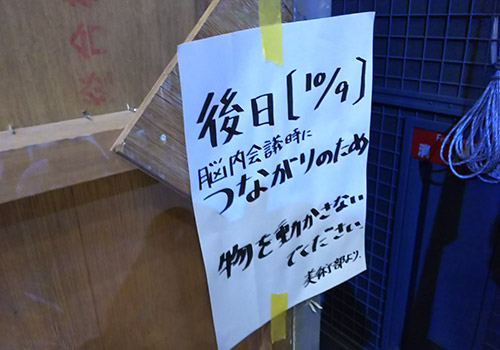 後日[10/9]
脳内会議時に
つながりのため
物を動かさない
でください。
美術部より.